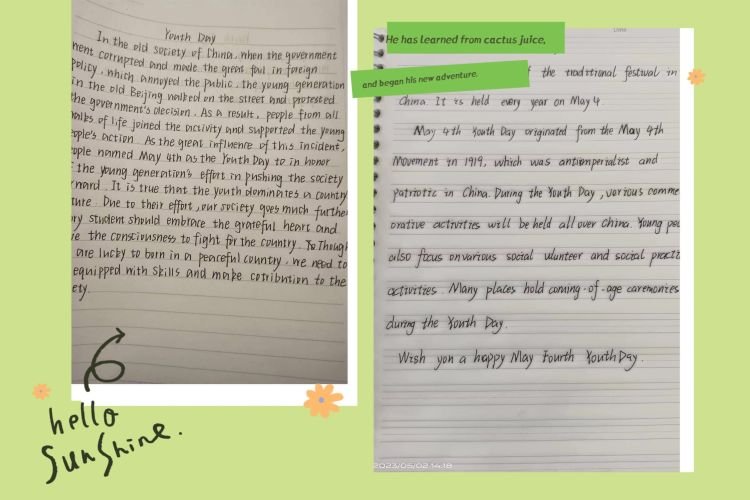 Youth Day
In the old society of China, when the government
ment corrupted and made the great fail in foreign
policy, which annoyed the public, the young generation
in the old Beijing walked on the street and protested
the government's decision. As a result, people from all
walks of life joined the activity and supported the young
ople's action. As the great influence of this incident,
ople named May 4th as the Youth Day to in honor
f the young generation's effort in pushing the society
rnard. It is true that the youth dominates a country
ture. Due to their effort, our society goes much further
ry student should embrace the grateful heart and
ve the consciousness to fight for the country. Though
are lucky to born in a peaceful country, we need to
equipped with skills and make cotribution to the
ety.
hello
Sunshine.
He has learned from cactus juice,
and began his new adventure.
the traditional festival in
China. It is held every year on May 4.
May 4th Youth Day originated from the May 4th
Movement in 1919, which was antiimperialist and
patriotic in China. During the Youth Day, various comme
orative activities will be held all over China. Young peo
also focus on various social vlunteer and social practi
activities. Many places hold coming-of-age caremonies
during the Youth Day.
Wish you a happy May Fourth Youth Day.
2023/05/02 14:18